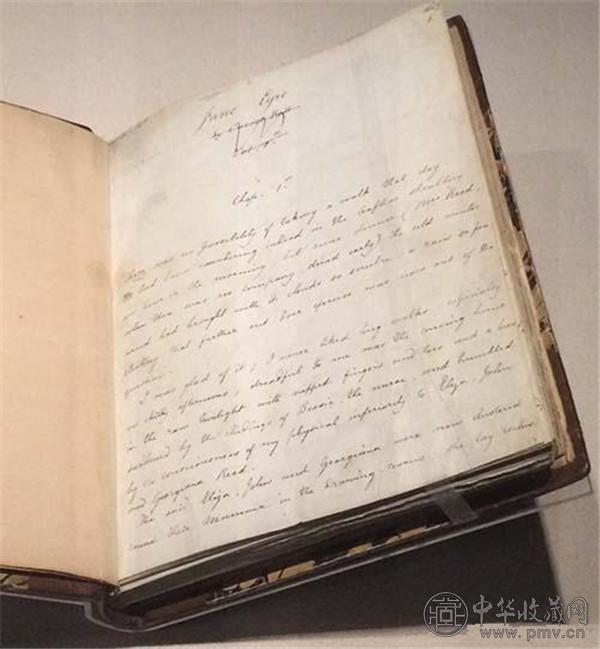 Jane Eyre
Vol. 1st
Chap. 1st
There was no possibility of taking a walk that day.
We had been wandering indeed in the leafless shrubbery
an hour in the morning, but since dinner (Mrs Reed,
when there was no company, dined early) the cold winter
wind had brought with it clouds so sombre, a rain so pene
trating that further out door exercise was now out of the
question.
I was glad of it; I never liked long walks especially
on chilly afternoons; dreadful to me was the coming home
in the raw twilight with nipped fingers and toes and a heart
saddened by the chidings of Bessie, the nurse, and humbled
by the consciousness of my physical inferiority to Eliza, John
and Georgiana Reed.
The said Eliza, John and Georgiana were now clustered
round their Mamma in the drawing room: she lay
中华收藏网
www.pmv.cn